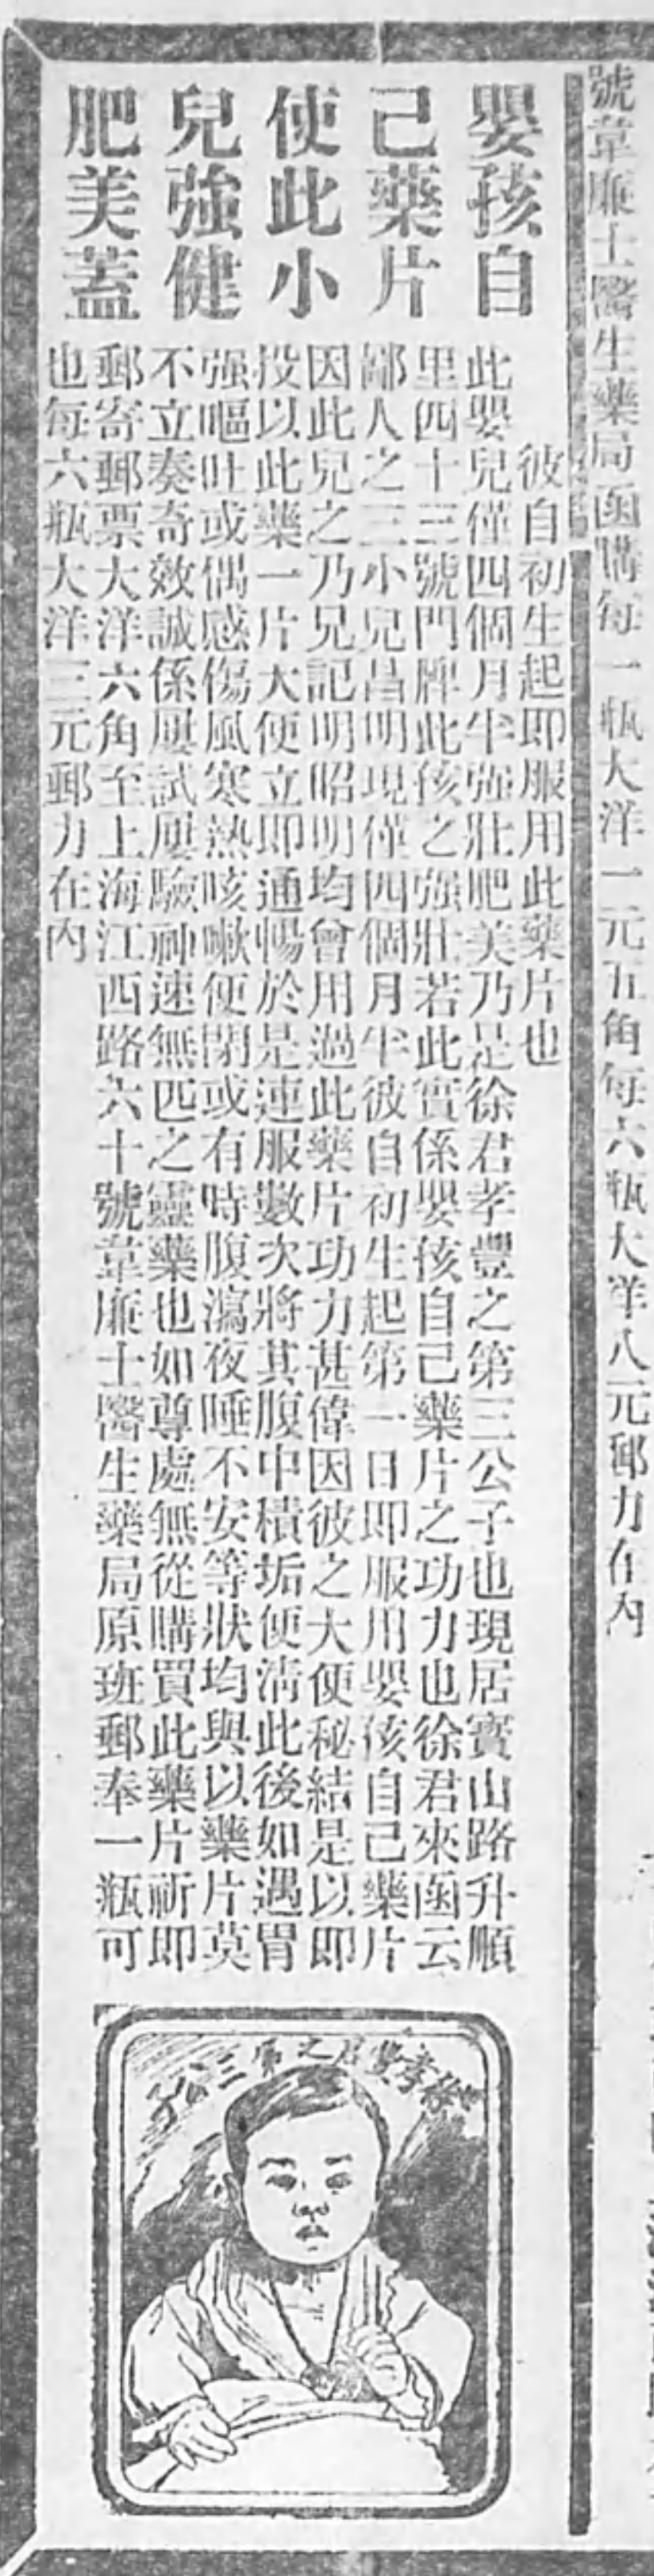 號韋廉士醫生藥局函購每一瓶大洋一元五角每六瓶大洋八元郵力在內
嬰孩自
己藥片
使此小
兒強健
肥美蓋
彼自初生起即服用此藥片也
此嬰兒僅四個月半强壯肥美乃是徐君孝豐之第三公子也現居寶山路升順
里四十三號門牌此孩之强壯若此實係嬰孩自己藥片之功力也徐君來函云
鄙人之三小兒昌明現僅四個月半彼自初生起第一日即服用嬰孩自己藥片
因此兒之乃兄記明昭明均曾用過此藥片功力甚偉因彼之大便秘結是以即
投以此藥一片大便立即通暢於是連服數次將其腹中積垢便淸此後如遇胃
强嘔吐或偶感傷風寒熱咳嗽便閉或有時腹瀉夜睡不安等狀均與以藥片莫
不立奏奇效誠係屢試屢驗神速無匹之靈藥也如尊處無從購買此藥片祈即
郵寄郵票大洋六角至上海江西路六十號韋廉士醫生藥局原班郵奉一瓶可
也每六瓶大洋三元郵力在內
徐孝豐君之第三公子